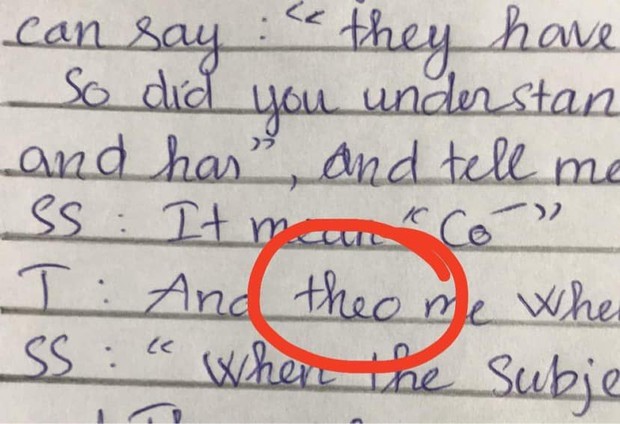 can say : “ they have
So did you understan
and has”, And tell me
SS : It mean “Co”
T : And theo me whe
SS : “ When the Subje